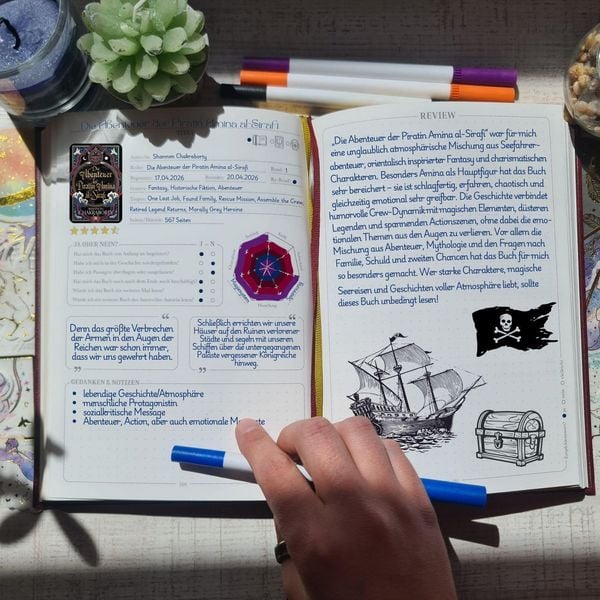 Die Abenteuer der Piratin Amina al-Sirafi
TITEL
Abenteuer
Piratin Amina
al-Sirafi
CHAKRABORTY
Autor/in: Shannon Chakraborty
Reihe: Die Abenteuer der Piratin Amina al-Sirafi Band: 1
Begonnen: 17.04.2026 Beendet: 20.04.2026 Re-Read:
Genre: Fantasy, Historische Fiktion, Abenteuer
Tropes: One Last Job, Found Family, Rescue Mission, Assemble the Crew,
Retired Legend Returns, Morally Grey Heroine
Seiten/Hörzeit: 567 Seiten
JA ODER NEIN? J - N
Hat mich das Buch von Anfang an begeistert?
Habe ich mich in der Geschichte wiedergefunden?
Habe ich Passagen übersprungen oder ausgelassen?
Hat mich das Buch auch nach dem Ende noch beschäftigt?
Würde ich das Buch ein weiteres Mal lesen?
Würde ich ein weiteres Buch des Autors/der Autorin lesen?
Denn das größte Verbrechen
der Armen in den Augen der
Reichen war schon immer,
dass wir uns gewehrt haben.
Schließlich errichten wir unsere
Häuser auf den Ruinen verlorener
Städte und segeln mit unseren
Schiffen über die untergegangenen
Paläste vergessener Königreiche
hinweg.
GEDANKEN & NOTIZEN
• lebendige Geschichte/Atmosphäre
• menschliche Protagonistin
• sozialkritische Message
• Abenteuer, Action, aber auch emotionale
REVIEW
„Die Abenteuer der Piratin Amina al-Sirafi“ war für mich
eine unglaublich atmosphärische Mischung aus Seefahrer-
abenteuer, orientalisch inspirierter Fantasy und charismatischen
Charakteren. Besonders Amina als Hauptfigur hat das Buch
sehr bereichert – sie ist schlagfertig, erfahren, chaotisch und
gleichzeitig emotional sehr greifbar. Die Geschichte verbindet
humorvolle Crew-Dynamik mit magischen Elementen, düsteren
Legenden und spannenden Actionszenen, ohne dabei die emo-
tionalen Themen aus den Augen zu verlieren. Vor allem die
Mischung aus Abenteuer, Mythologie und den Fragen nach
Familie, Schuld und zweiten Chancen hat das Buch für mich
so besonders gemacht. Wer starke Charaktere, magische
Seereisen und Geschichten voller Atmosphäre liebt, sollte
dieses Buch unbedingt lesen!